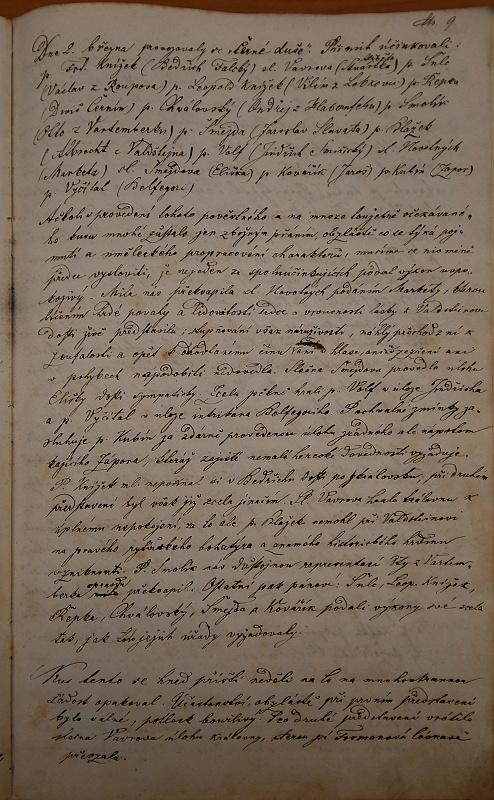 No. 9
Dne 2. března provozovaly se „Černé duše“. Při nich účinkovali:
p. Frt. Knížek (Bedřich Falcký) sl. Vavrova p. Šulc
(Václav z Roupova) p. Leopold Knížek (Vilím z Lobkovic) p. Řepka
(Diviš Černín) p. Chválovský (Ondřej z Habernfeldu) p. Smolík
(Otto z Vartemberku) p. Šmejda (Jaroslav Slavata) p. Blažek
(Albrecht z Valdštejna) p. Volf (Jindřich Smiřický) sl. Novotných
(Markéta) sl. Šmejdova (Eliška) p. Kovařík (Jaroš) p. Kubín (Zápor)
p. Vyčítal (Belfegori)
Ačkoli v provedení tohoto pověstného a na mnoze toužebně očekávaného
kusu mnohé zůstalo jen zbožným přáním, obzvláště co se týká poj-
mutí a uměleckého propracování charakterů, musíme se nicméně
přece vysloviti, že nejeden ze spoluúčinkujících podal výkon uspo-
kojivý. Mile nás překvapila sl. Novotných podáním Markéty, kterou
líčením hrdé povahy a šlechetnosti srdce a vroucnosti lásky k Valdštenovi
dosti živě představila; stupňování však náruživosti, náhlý přechod z ní k
zoufalosti a opět k činu v hlase, ani v vzezření ani
v pohybech napodobiti nedovedla. Slečna Šmejdova provedla úlohu
Elišky dosti sympaticky. Zcela pěkně hráli p. Volf v úloze Jindřicha
a p. Vyčítal v úloze intrikána Belfegoriho. Pochvalné zmínky za-
sluhuje p. Kubín za zdárné provedenou úlohu zrádného ale napotom
kajícího Zápora, kteráž zajisté nemalé herecké dovednosti vyžaduje.
P. Knížek ml. nepočínal si v Bedřichu dosti po královsku, při druhém
představení byl však již zcela jinačím. Sl. Vavrova hrála královnu k
úplnému uspokojení, za to ale p. Blažek nemohl při Valdštýnovi
na pravého rytířského bohatýra a onamého historického hrdinu
vzniknouti. P. Smolík nás důstojnou reprezentací Oty z Vartem-
berka opravdě překvapil. Ostatní pak pánové: Šulc, Leop. Knížek,
Řepka, Chválovský, Šmejda a Kovařík podali výkony své zcela
tak, jak toho jejich úlohy vyžadovaly.
Kus tento se hned příští neděli na to na mnohostrannou
žádost opakoval. Účastenství, obzvláště při prvním představení
bylo valné, potlesk bouřlivý. Pro druhé představení vrátila
slečna Vavrova úlohu královny, kterou pí Formanová láskavě
převzala.